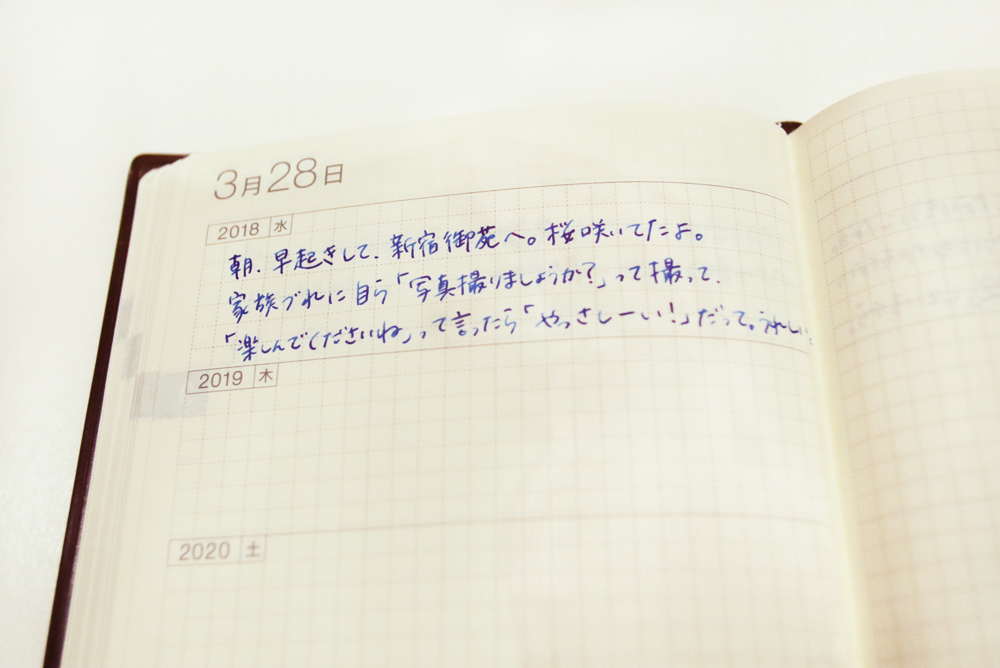 3月28日
2018 水
朝、早起きして、新宿御苑へ。桜咲いてたよ。
家族づれに自ら「写真撮りましょうか?」って撮って、
「楽しんでくださいね」って言ったら「やっさしーい!」だって。うれしい。
2019 木
2020 土